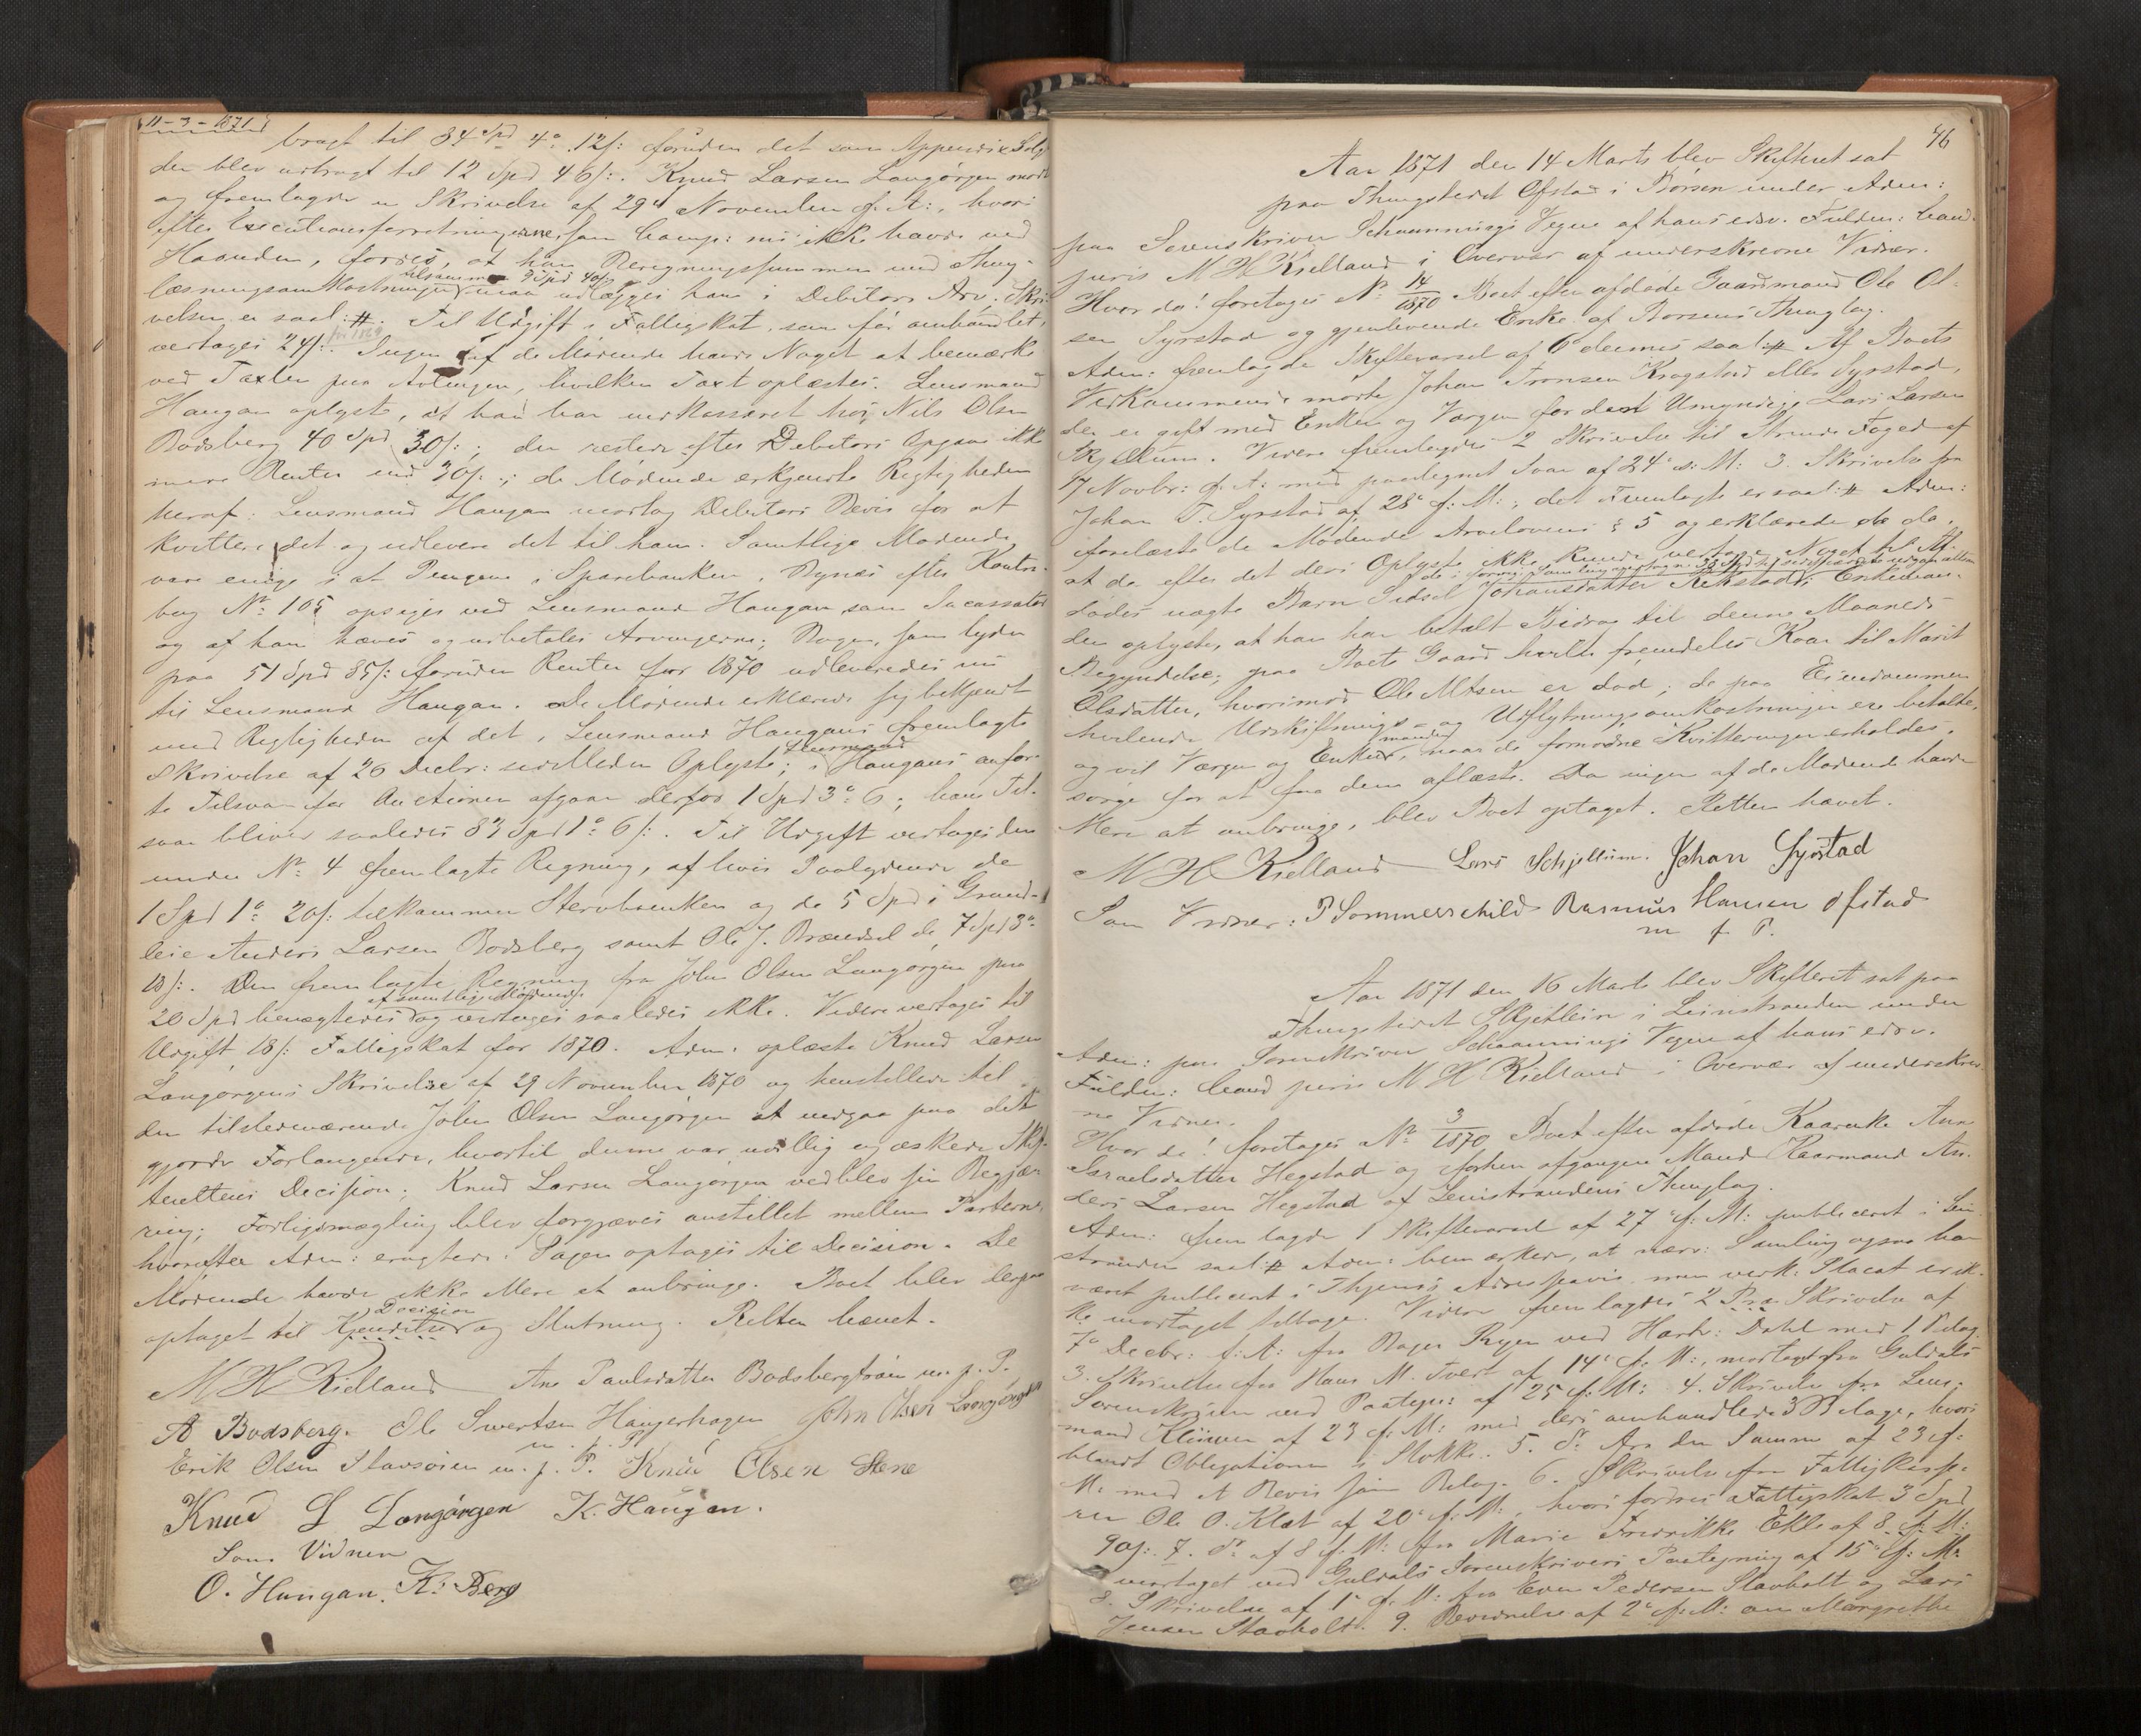 11-3-1871
bragt til 34 Spd 4 12/: foruden det som Appendix Solg
der blev udbragt til 12 Spd 46/:. Knud Larsen Langørgen mødte
og fremlagde en Skrivelse af 29de November f. A:, hvori
efter Executionsforretningerne, som Comp: nu ikke havde ved
Haanden, fordres, at hans Beregningssummen med Thing-
læsningsomkostninger tilsammen 9 Spd 40/: maa udlægges ham i Debitors Arv. Skri-
velsen er saal: #. Til Udgift i Fattigskat, som før omhandlet,
for 1869
vertages 24/:. Ingen af de Mødende havde Noget at bemærke
ved Taxten paa Avlingen, hvilken Taxt oplæstes. Lensmand
Haugan oplyste, at han har inkasseret hos Nils Olsen
Bodsberg 40 Spd 30/:; der rester efter Debitors Opgave ikke
mere Renter end 30/:; de Mødende erkjendte Rigtigheden
heraf. Lensmand Haugan modtog Debitors Bevis for at
kvittere det og udlevere det til ham. Samtlige Mødende
vare enige i at Pengene i Sparebanken, Bynæs efter Kontra-
bog No 105 opsiges ved Lensmand Haugan som Incassator
og af han hæves og udbetales Arvingerne; Bogen, som lyder
paa 51 Spd 85/: foruden Renter for 1870 udleveredes nu
til Lensmand Haugan. De Mødende erklærede sig bekjendt
med Rigtigheden af det, Lensmand Haugans fremlagte
Skrivelse af 26 Decbr: sidstleden Oplyste; i Lensmand Haugans anfør-
te Tilsvar for Auctionen afgaar derfor 1 Spd 3 6; hans Til-
svar bliver saaledes 83 Spd 1 6/:. Til Udgift vertages den
under No 4 fremlagte Regning, af hvis Paalydende de
1 Spd 1 20/: tilkommer Stervboenken og de 5 Spd i Grund-
leie Anders Larsen Bodsberg samt Ole J. Brændsel de 7 Spd 3
18/:. Den fremlagte Regning fra John Olsen Langørgen paa
20 Spd benægtedes af samtlige Mødende og vertages saaledes ikke. Videre vertages til
Udgift 18/: Fattigskat for 1870. Adm. oplæste Knud Larsen
Langørgens Skrivelse af 29 November 1870 og henstillede til
den tilstedeværende John Olsen Langørgen at indgaa paa det
gjorde Forlangende, hvortil denne var uvillig og æskede Skif-
terettens Decision; Knud Larsen Langørgen vedblev sin Begjæ-
ring; Forligsmægling blev forgjæves anstillet mellem Parterne,
hvorefter Adm: eragtede: Sagen optages til Decision. De
Mødende havde ikke Mere at anbringe. Boet blev derpaa
optaget til Kjendelse Decision og Slutning. Retten hævet.
M H Kielland Ane Paulsdatter Bodsbergtrøen m. p. P.
A Bodsberg. Ole Sivertsen Haugerhagen John Olsen Langørgen
m. p. P.
Erik Olsen Stavsøien m. p. P. Knud Olsen Stene
Knud L Langørgen K. Haugan.
Som Vidner
O. Haugan. K. Berg
46
Aar 1871 den 14 Marts blev Skifteret sat
paa Thingstedet Ofstad i Børsen under Adm:
paa Sorenskriver Schanning's Vegne af hans edsv. Fuldm: Cand.
juris M H Kielland i Overvær af underskrevne Vidner.
Hvor da! foretoges No 14/1870 Boet efter afdøde Gaardmand Ole Ol-
sen Syrstad og gjenlevende Enke af Børsens Thinglag.
Adm: fremlagde Skiftevarsel af 6 dennes saal: # Af Boets
Vedkommende mødte Johan Tronsen Krogstad eller Syrstad,
der er gift med Enken og Værgen for den Umyndige Lars Larsen
Skjellum. Videre fremlagdes 2 Skrivelse til Strinde Foged af
17 Novbr: f. A: med paategnet Svar af 24 s: M: 3. Skrivelse fra
Johan T. Syrstad af 28 f: M:, det Fremlagte er saal: # Adm:
forelæste de Mødende Arvelovens § 5 og erklærede de da,
at de efter det deri Oplyste ikke kunde vertage Noget til Af-
de i forrige Samling
dødes uægte Barn Sidsel Johansdatter Rekstad; Enkeman-
den oplyste, at han har betalt Bidrag til denne Maaneds
Begyndelse; paa Boets Gaard hviler fremdeles Kaar til Marit
Olsdatter, hvorimod Ole Olsen er død; de paa Eiendommen
hvilende Udskiftnings- og Udflytningsomkostninger ere betalte,
og vil Værgen og Enkemanden, naar de fornødne Kvitteringer erholdes,
sørge for at faa dem aflæste. Da ingen af de Mødende havde
Mere at anbringe, blev Boet optaget. Retten hævet.
M H Kielland Lars Schjellum. Johan Syrstad
Som Vidner: P Sommerschild Rasmus Hansen Ofstad
m f P.
Aar 1871 den 16 Marts blev Skifteret sat paa
Thingstedet Skjetlein i Leinstranden under
Adm: paa Sorenskriver Schanning's Vegne af hans edsv.
Fuldm: Cand juris M H Kielland i Overvær af underskrev-
ne Vidner.
Hvor da! foretoges No 3/1870 Boet efter afdøde Kaarenke Ane
Israelsdatter Hegstad og forhen afgangne Mand Kaarmand An-
ders Larsen Hegstad af Leinstrandens Thinglag.
Adm: fremlagde 1 Skiftevarsel af 27 f: M: publiceret i Lein-
stranden saal: # Adm: bemærkede, at nærv: Samling ogsaa har
været publiceret i Thjems Adresseavis men verk: Placat er ik-
ke modtaget tilbage. Videre fremlagdes 2 Skrivelse af
7 Decbr: f: A: fra Bager Ryen ved Hartv: Dahl med 1 Bilag
3. Skrivelse fra Hans M. Tvert af 14 f: M:, modtaget fra Guldals
Sorenskriver med Paategn: af 25 f: M: 4. Skrivelse fra Lens-
mand Klüwer af 23 f: M: med deri omhandlede 3 Bilage, hvori
blandt Obligationen i Stokke. 5. do fra den Samme af 23 f:
M: med et Bevis som Bilag. 6. Skrivelse fra Fattigkasse-
rer Ole O. Klæt af 20 f: M:, hvori fordres Fattigskat 3 Spd
90/:. 7. do af 8 f: M: fra Marie Fredrikke Ekle af 8 f: M:
modtaget ved Guldals Sorenskrivers Paategning af 15 f: M:
8. Skrivelse af 1 f: M: fra Even Pedersen Stavholt og Lars
Jensen Stavholt. 9. Bevidnelse af 2 f: M: om Margrethe